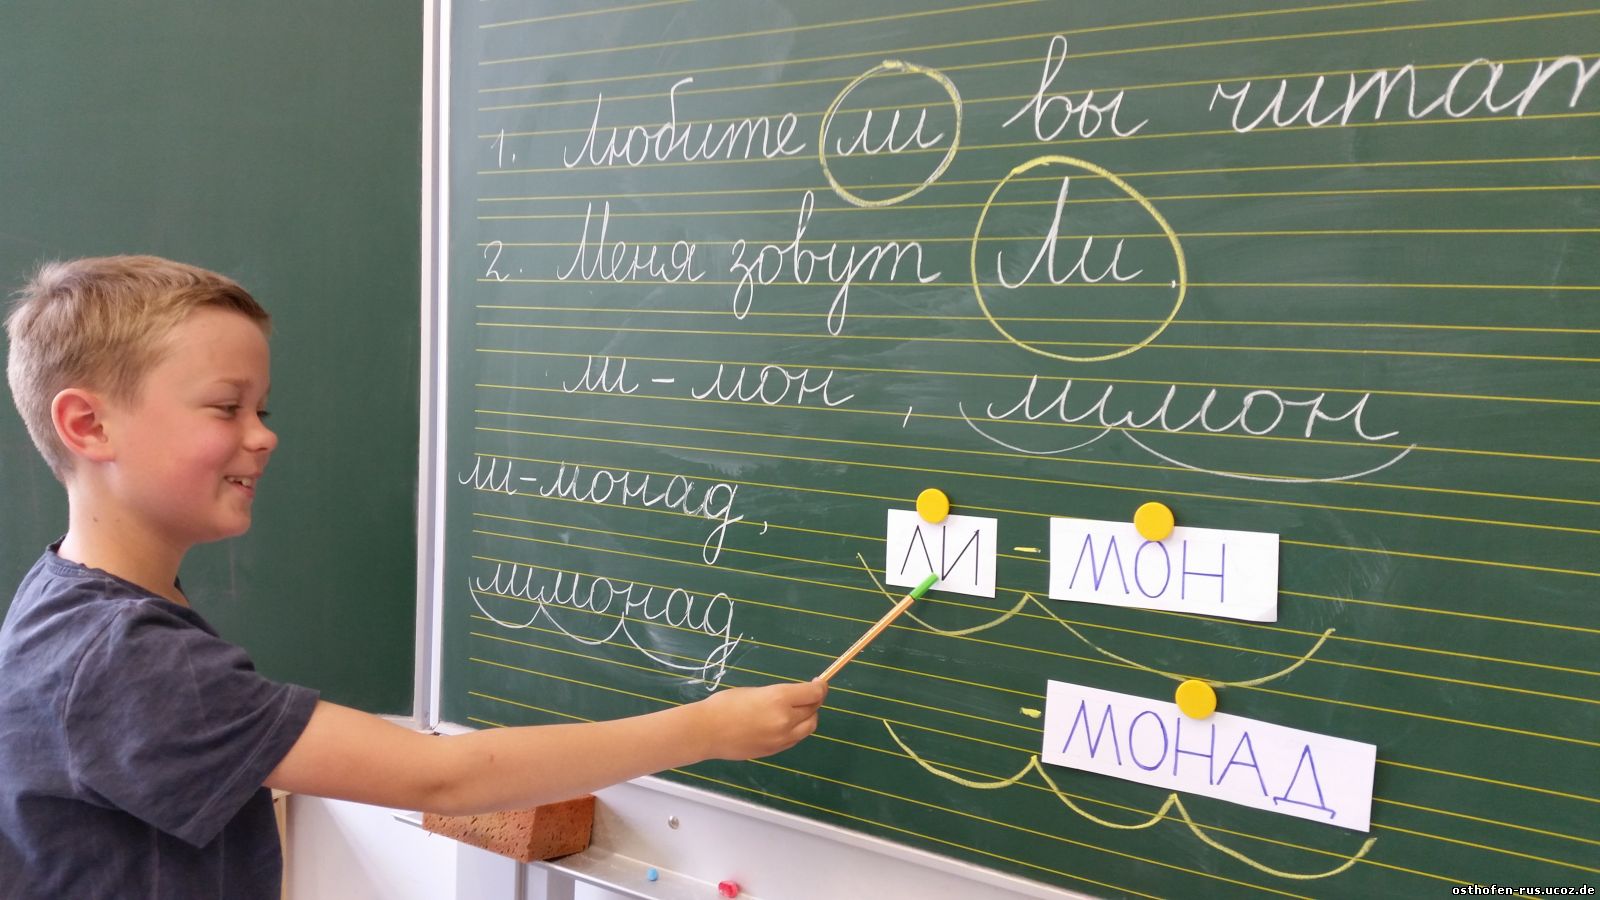 1. Любите ли вы читат
2. Меня зовут Ли.
ли-мон, лимон
ли-монад,
лимонад.
ЛИ - МОН
- МОНАД
osthofen-rus.ucoz.de